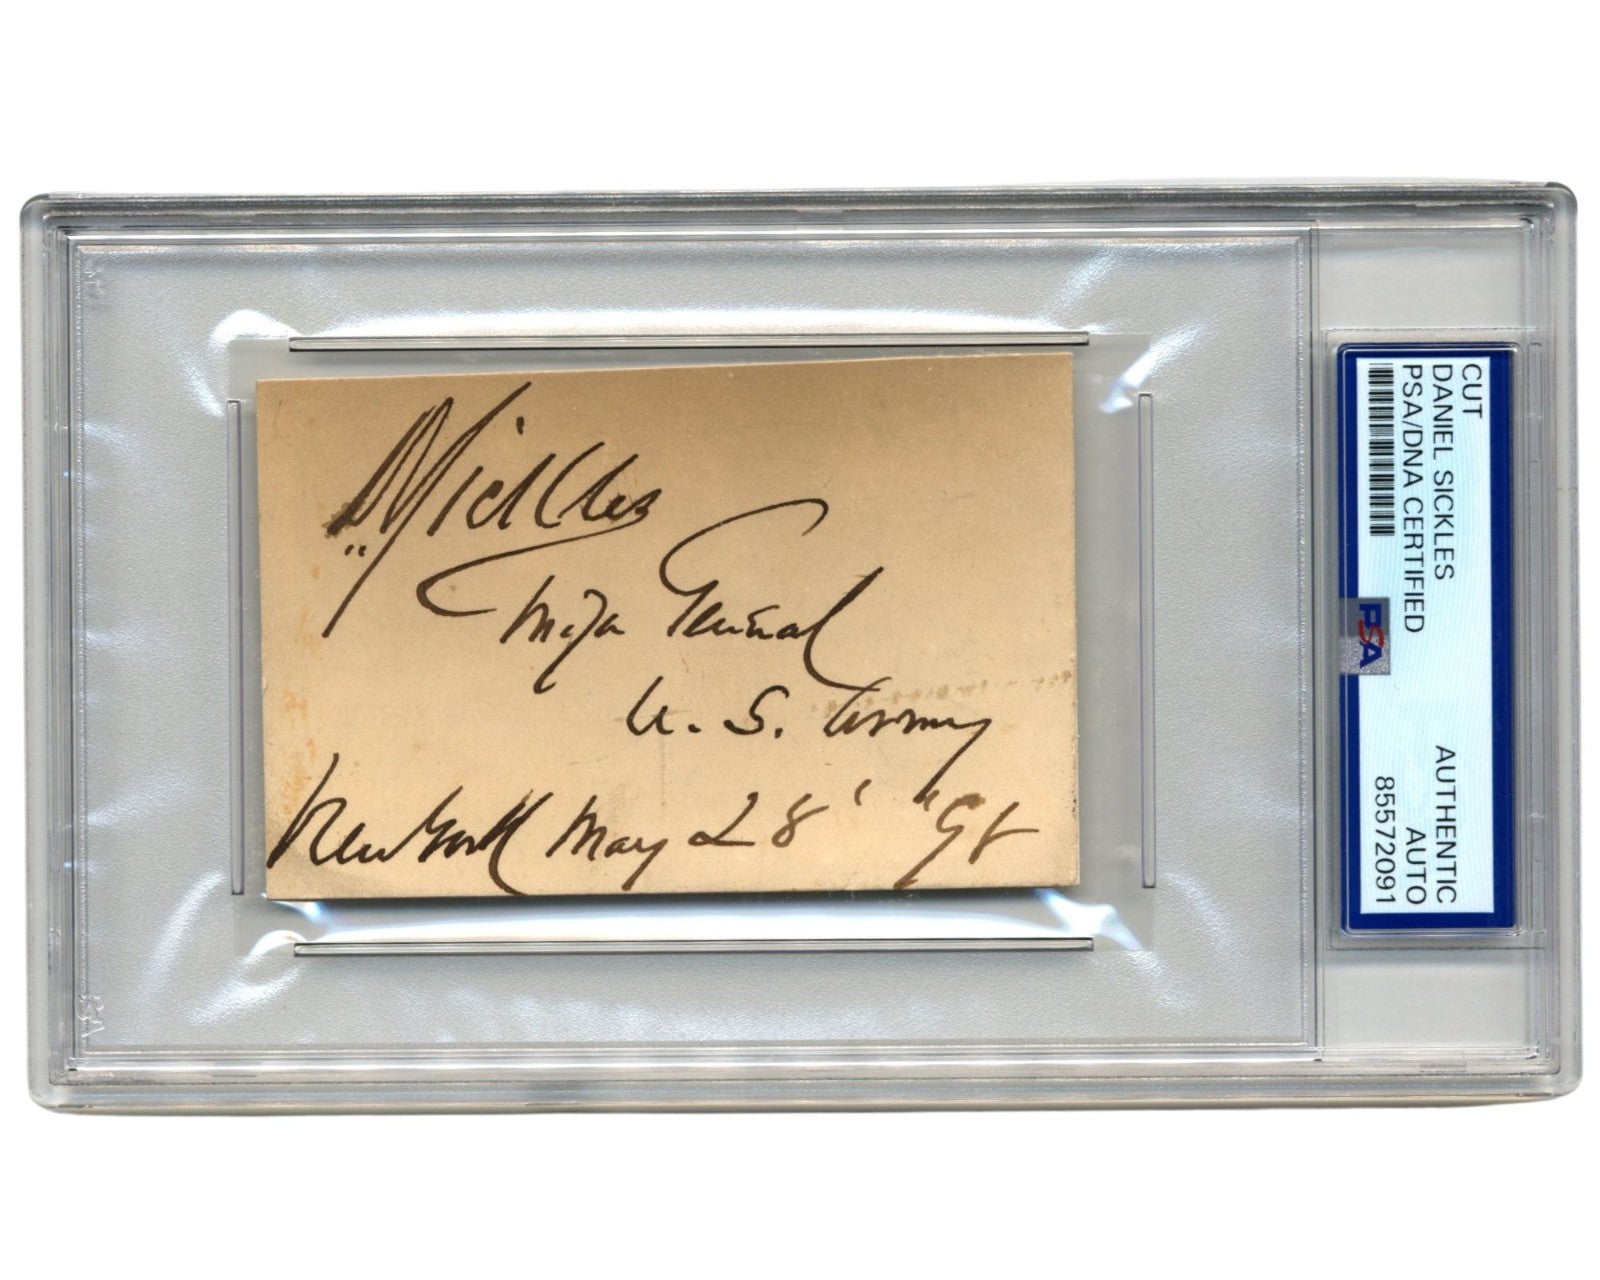 D Sickles
Maj. General
U. S. Army
New York May 28'
CUT
DANIEL SICKLES
PSA/DNA CERTIFIED
AUTHENTIC
AUTO
85572091
PSA
PSA